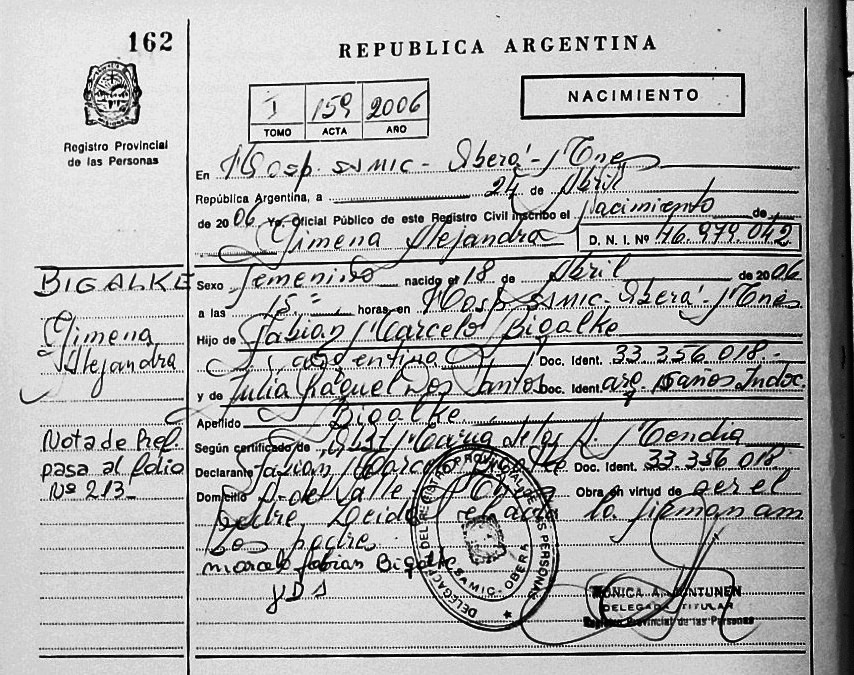 162
REPUBLICA ARGENTINA
I 159 2006
TOMO ACTA AÑO
NACIMIENTO
Registro Provincial
de las Personas
En Hosp. SAMIC - Oberá - Mnes
República Argentina, a 24 de Abril
de 2006 Yo, Oficial Público de este Registro Civil inscribo el Nacimiento de
Gimena Alejandra D. N. I. Nº 46.979.042
BIGALKE
Gimena
Alejandra
Nota de Ref.
pasa al folio
Nº 213-
Sexo Femenino nacido el 18 de Abril de 2006
a las 15 horas, en Hosp. SAMIC - Oberá - Mnes
Hijo de Fabian Marcelo Bigalke
argentina Doc. Ident. 33.356.018.-
y de Julia Raquel Dos Santos Doc. Ident. arg. años Indoc.
Apellido Bigalke
Según certificado de Obst. Maria de los A. Mendra
Declarante Fabian Marcelo Bigalke Doc. Ident. 33.356.018
Domicilio A. del Valle Obera Obra en virtud de ser el
padre Leida el acta la firman am
bos padres
marcelo fabian Bigalke
JDS
DELEGACION DEL REGISTRO PROVINCIAL DE LAS PERSONAS
SAMIC - OBERA
MONICA A. JUNTUNEN
DELEGADA TITULAR
Registro Provincial de las Personas